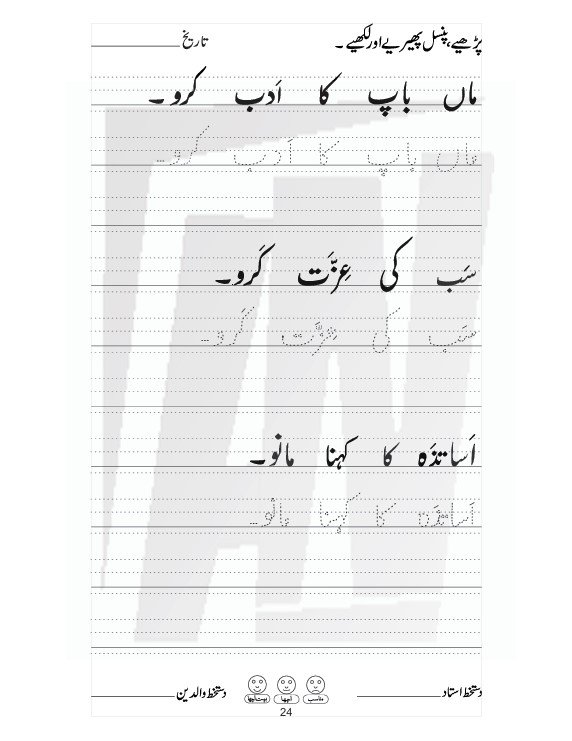 پڑھیے، پنسل پھیریے اور لکھیے۔ تاریخ
ماں باپ کا اَدب کرو۔
ماں باپ کا اَدب کرو۔
سَب کی عِزَّت کَرو۔
سَب کی عِزَّت کَرو۔
اَساتذَہ کا کہنا مانو۔
اَساتذَہ کا کہنا مانو۔
دستخط استاد مناسب اچھا بہت اچھا دستخط والدین
24